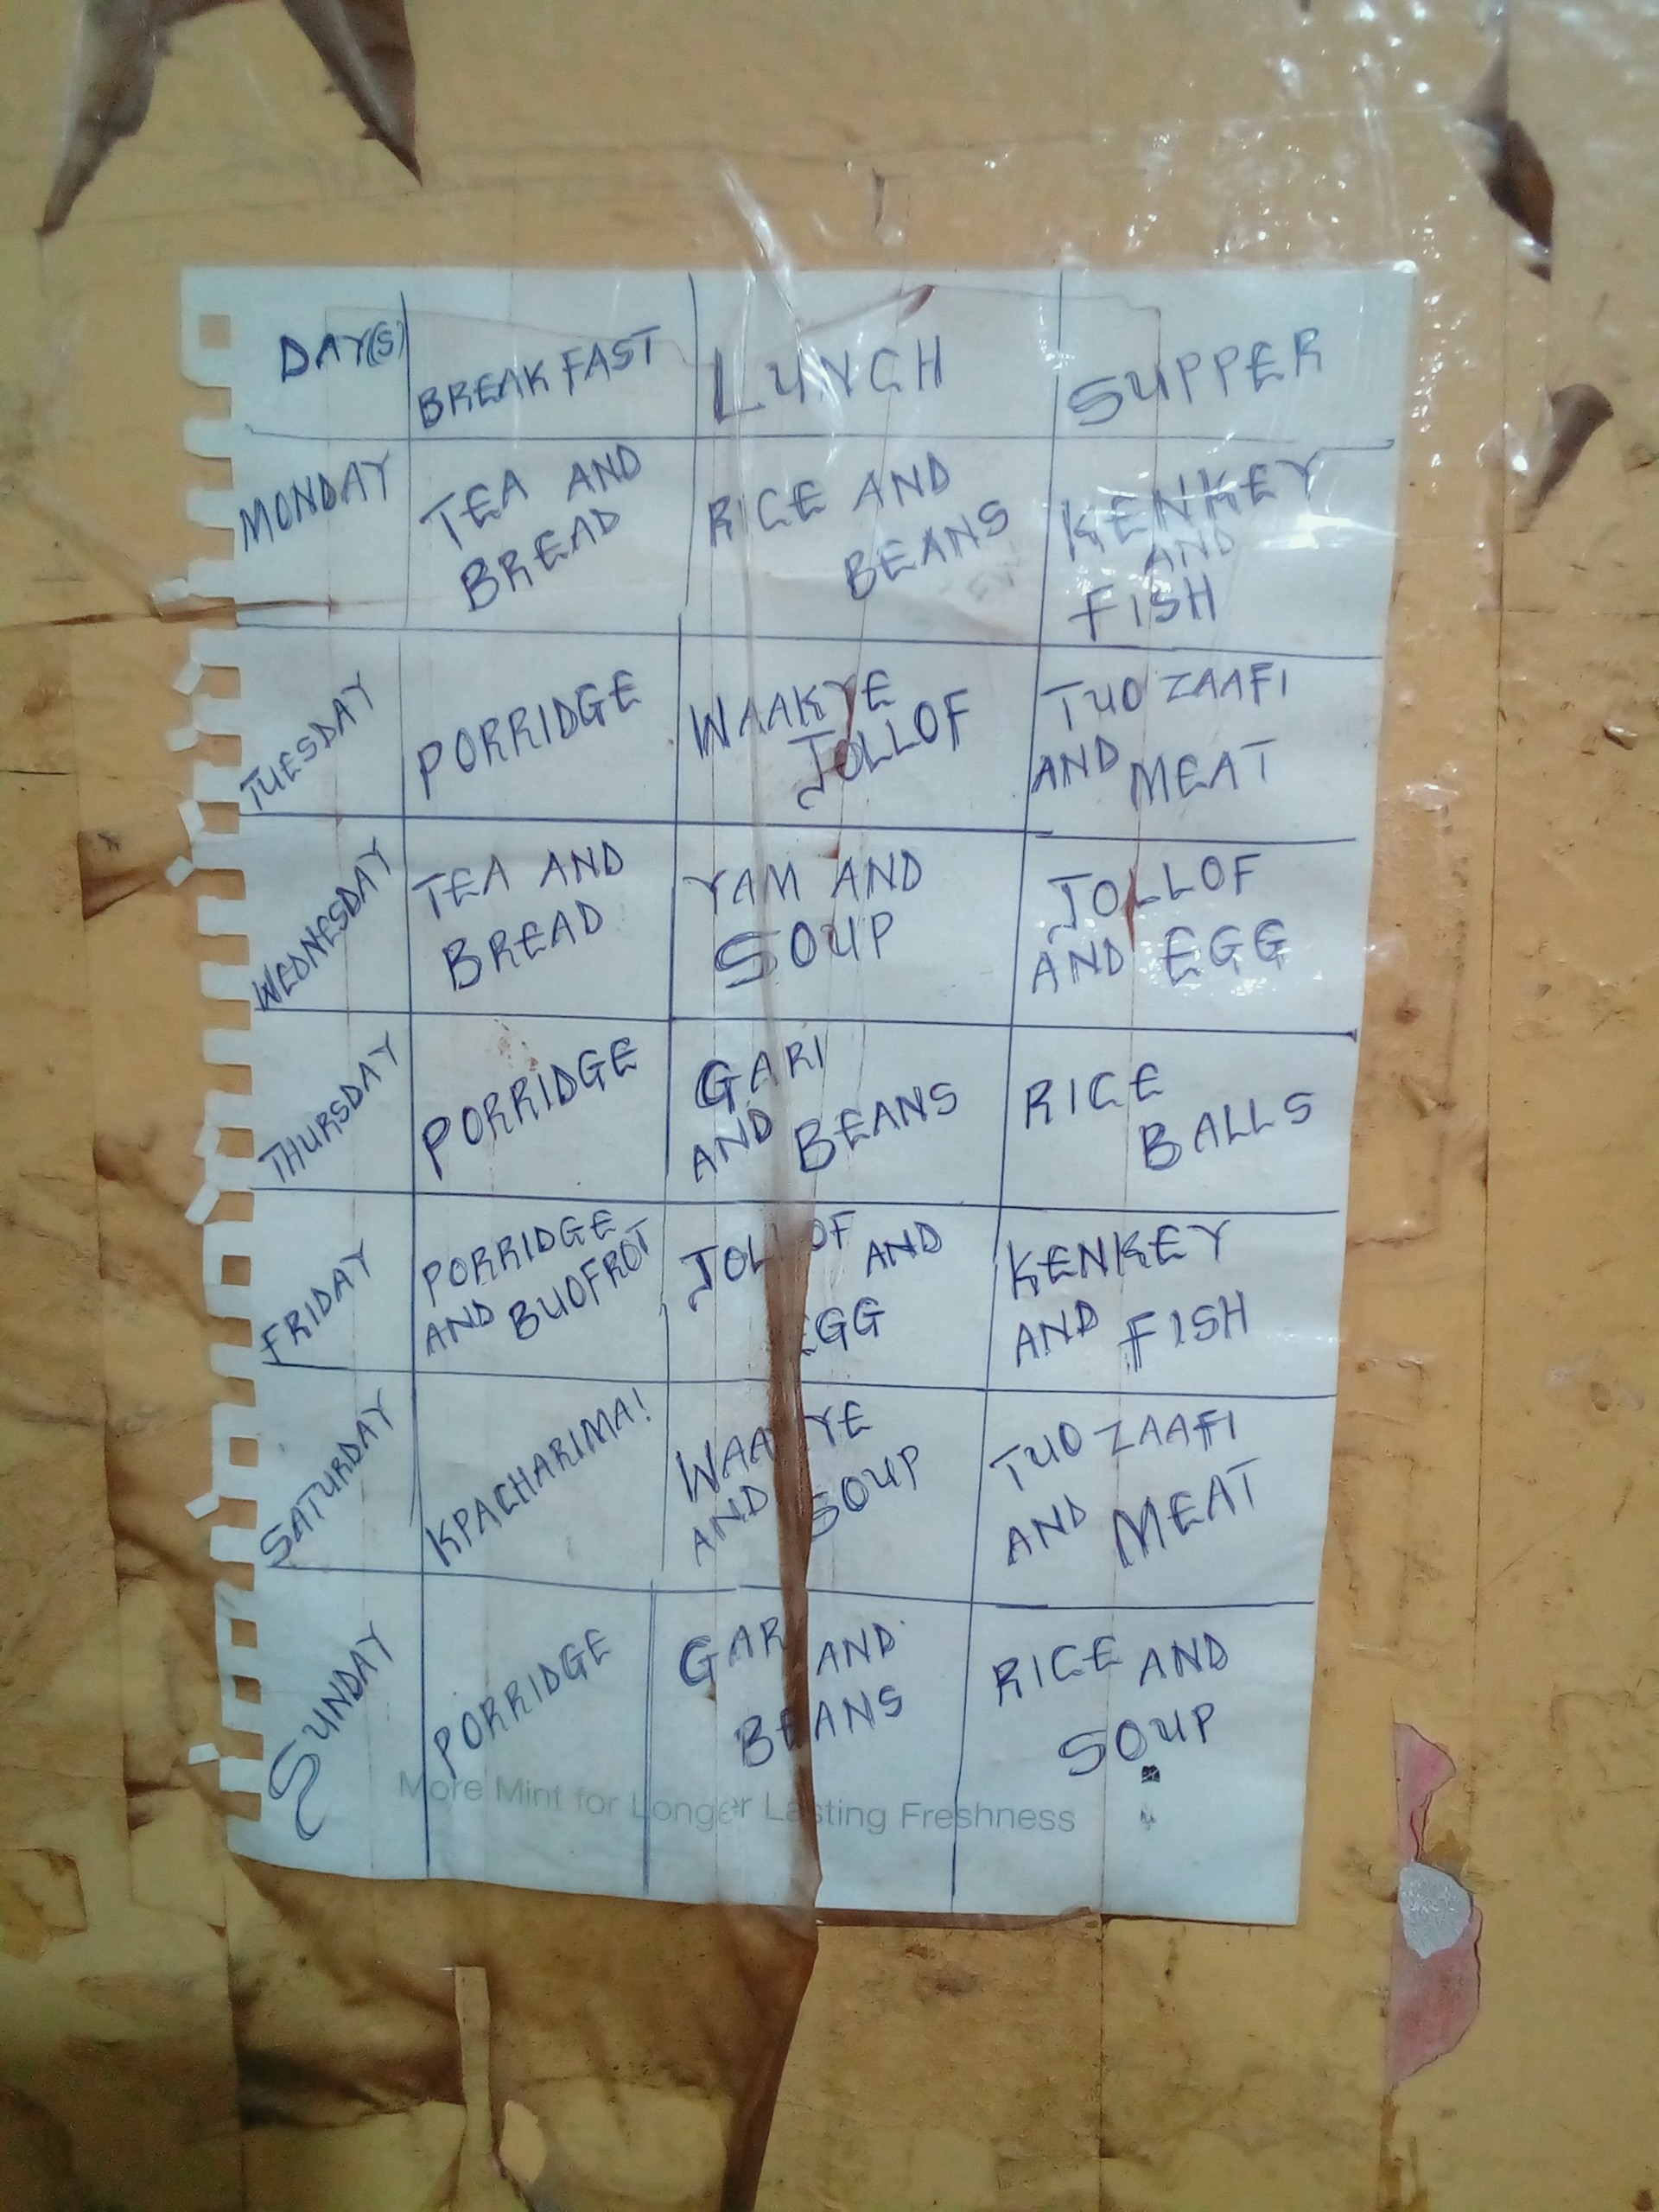 DAY(S) BREAKFAST LUNCH SUPPER
MONDAY TEA AND BREAD RICE AND BEANS KENKEY AND FISH
TUESDAY PORRIDGE WAAKYE JOLLOF TUO ZAAFI AND MEAT
WEDNESDAY TEA AND BREAD YAM AND SOUP JOLLOF AND EGG
THURSDAY PORRIDGE GARI AND BEANS RICE BALLS
FRIDAY PORRIDGE AND BUOFROT JOLLOF AND EGG KENKEY AND FISH
SATURDAY KPACHARIMA! WAAKYE AND SOUP TUO ZAAFI AND MEAT
SUNDAY PORRIDGE GAR AND BEANS RICE AND SOUP
More Mint for Longer Lasting Freshness